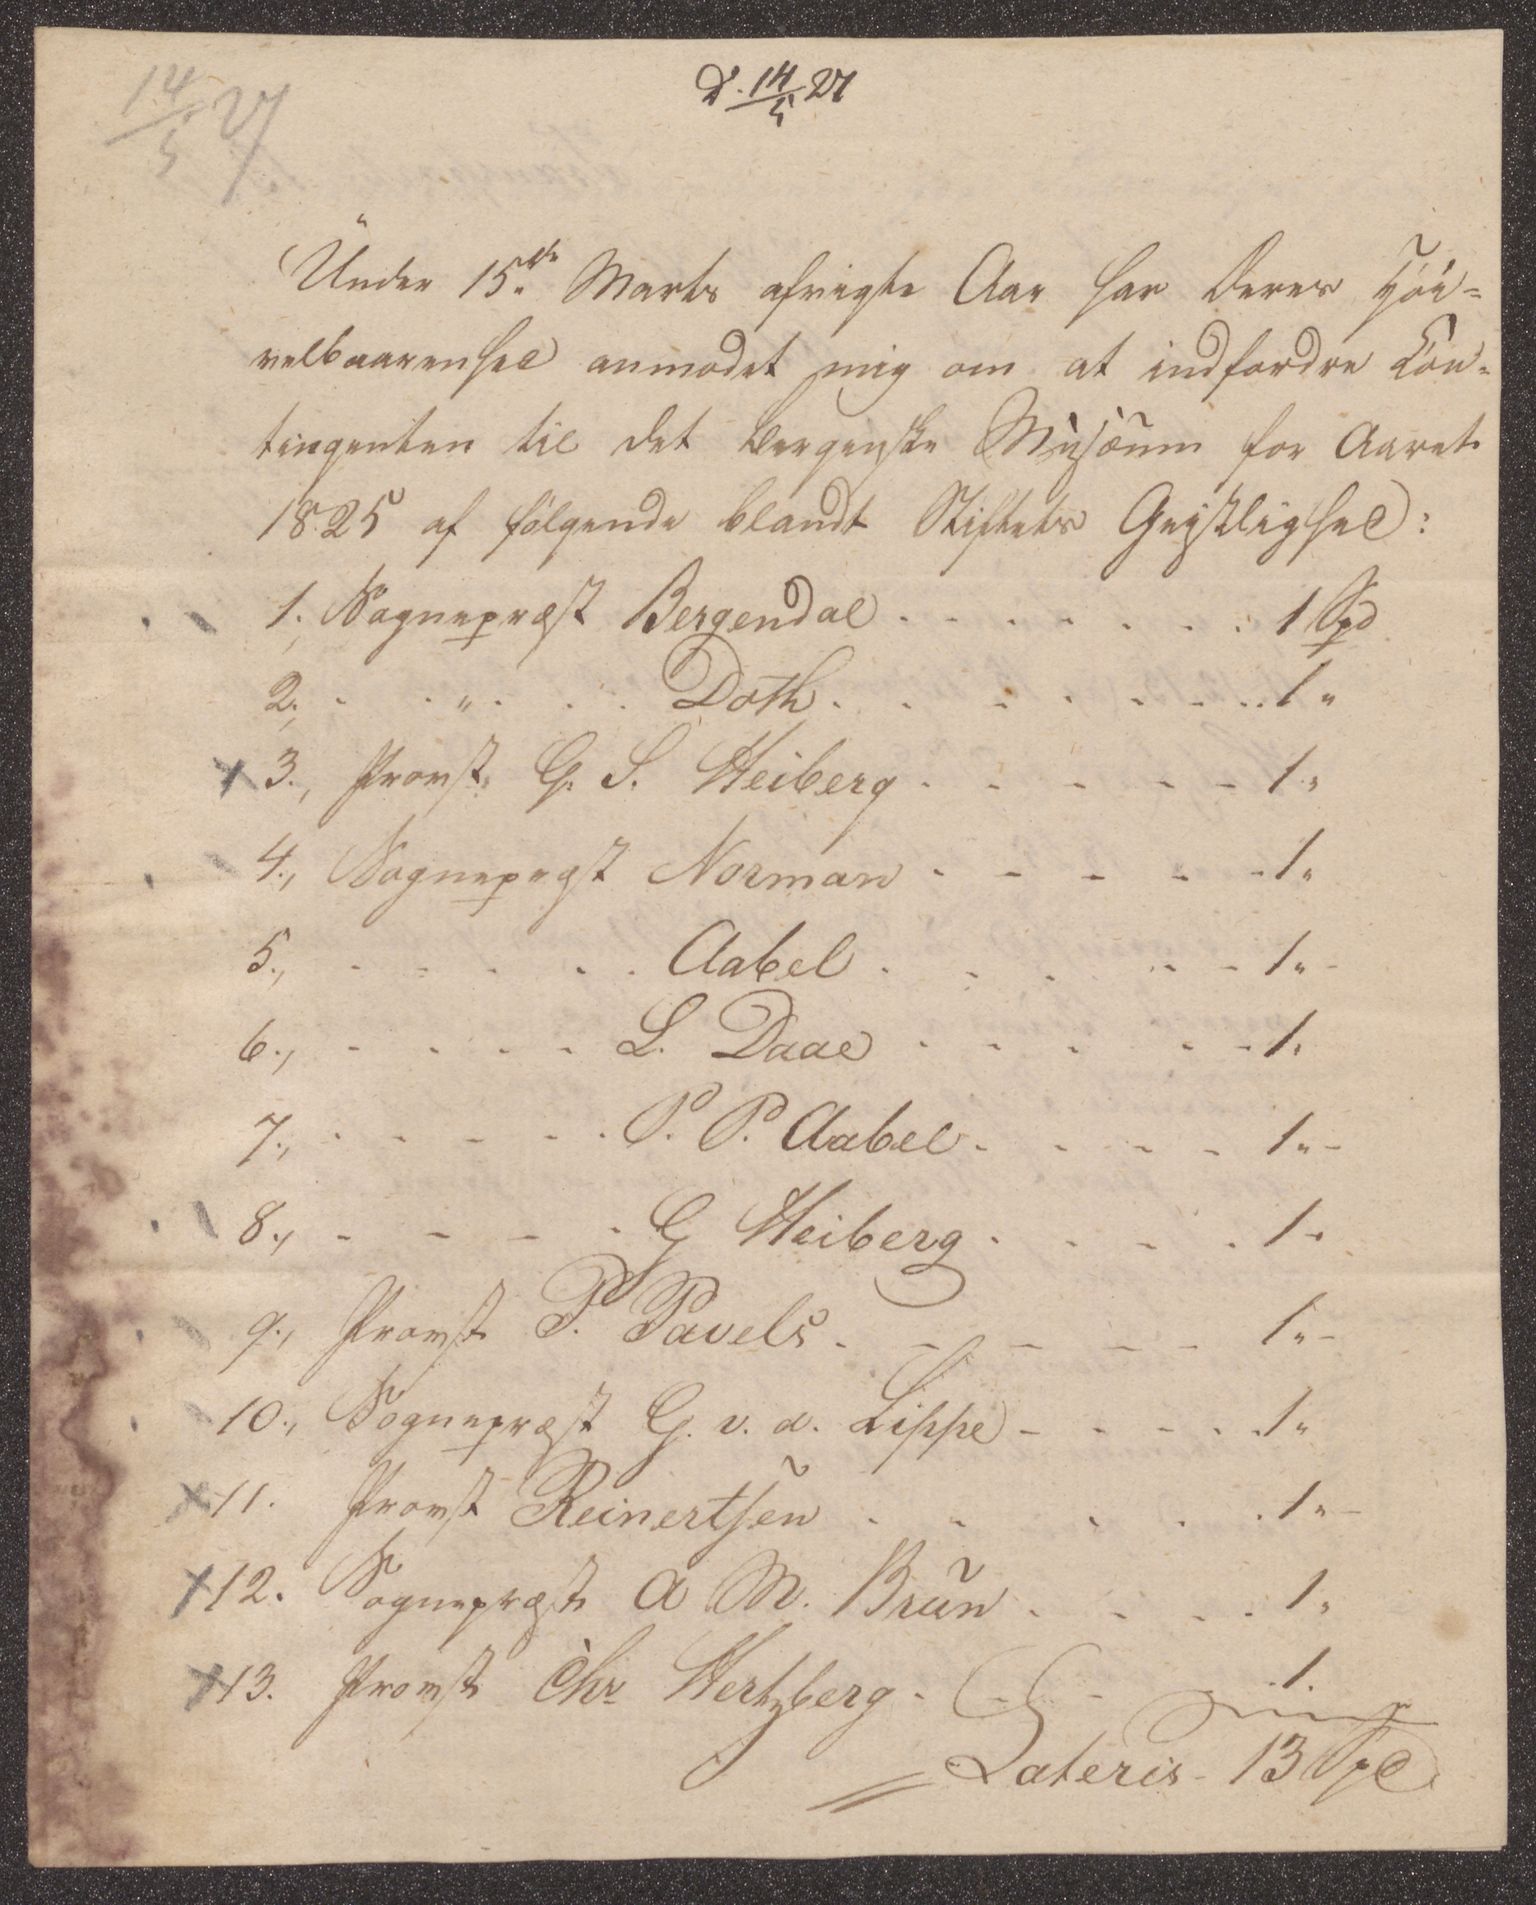 14/5 27
D. 14/5 27
Under 15de Marts afvigte Aar har Deres Høi=
velbaarenhed anmodet mig om at indfordre Con=
tingenten til det bergenske Musæum for Aaret
1825 af følgende blandt Stiftets Geistlighed:
1., Sognepræst Bergendal . . . . . . . 1 Spd
2., . . " . . . Doth . . . . . . . 1 "
3., Provst G. S. Heiberg . . . . . 1 "
4., Sognepræst Norman . . . . . 1 "
5., . . . . . Aabel . . . . . 1 " -
6., . . . . L. Daae . . . . . 1 "
7., . . . . . P. P. Aabel . . . . 1 " -
8., . . . . G Heiberg . . . . 1 "
9., Provst P. Pavels . . . . . 1 " -
10., Sognepræst G. v. d. Lippe . . . . 1 "
11. Provst Reinertsen . . . . . 1 " -
12. Sognepræst A M. Brun . . . . 1 "
13. Provst Chr Hertzberg . . . 1.
Lateris - 13 Spd